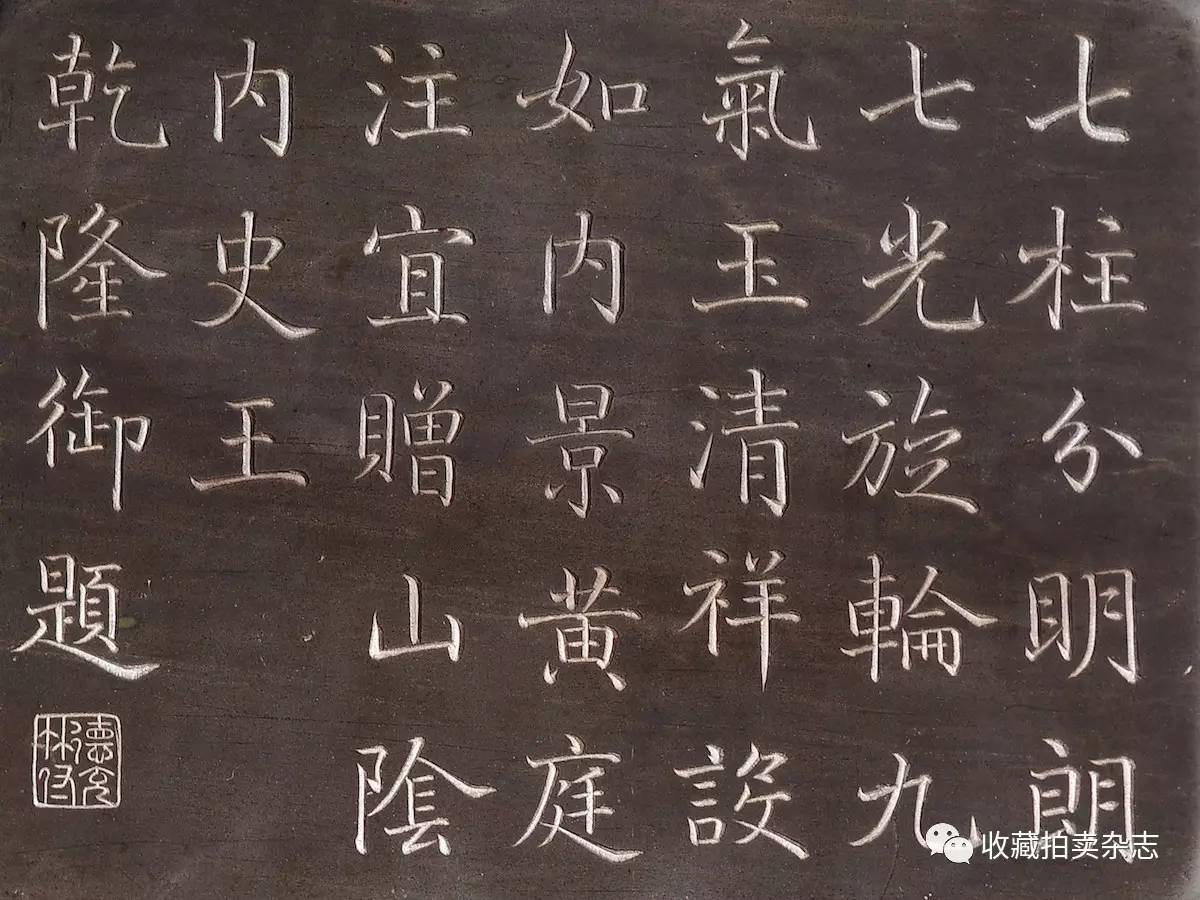 七柱分明朗
七光旋輪九
氣玉清祥設
如内景黄庭
注宜贈山陰
内史王
乾隆御題
收藏拍卖杂志